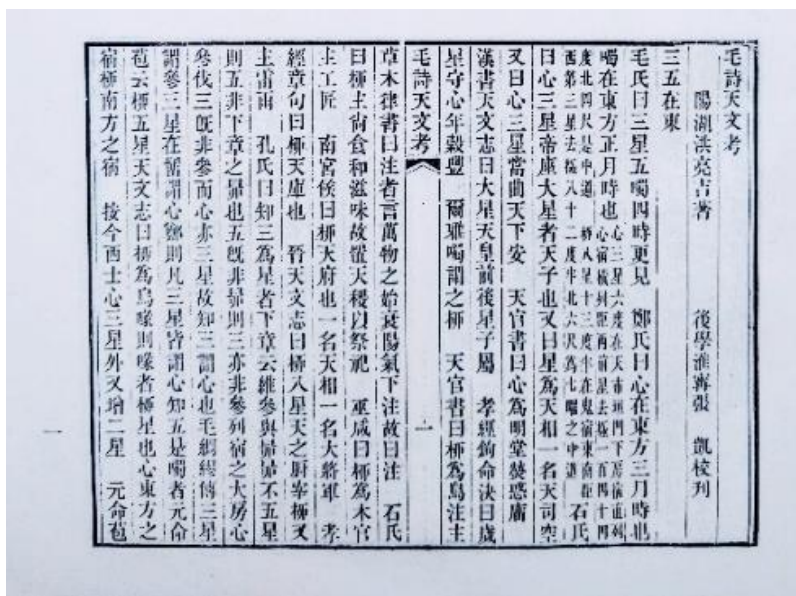 毛詩天文考
陽湖洪亮吉著　後學淮寧張　凱校刊
三五在東
毛氏曰三星五噣四時更見　鄭氏曰心在東方三月時也
噣在東方正月時也　心三星六度在天市垣門下房宿東列
心宿橫列距西前星去極一百四十四
度北四尺是中道　柳八星十三度半在鬼宿東南距
西第三星去極八十二度半北六尺為七曜之中道　石氏
曰心三星帝座大星者天子也又曰星為天相一名天司空
又曰心三星當曲天下安　天官書曰心為明堂熒惑廟
漢書天文志曰大星天皇前後星子屬　孝經鉤命決曰歲
星守心年穀豐　爾雅噣謂之柳　天官書曰柳為鳥注主
毛詩天文考
一
草木律書曰注者言萬物之始衰陽氣下注故曰注　石氏
曰柳主尚食和滋味故置天稷以祭祀　巫咸曰柳為木官
主工匠　南宮候曰柳天府也一名天相一名大將軍　孝
經章句曰柳天庫也　晉天文志曰柳八星天之廚宰柳又
主雷雨　孔氏曰知三為星者下章云維參與昴昴不五星
則五非下章之昴也五既非昴則三亦非參列宿之大房心
參伐三既非參而心亦三星故知三謂心也毛綢繆傳三星
謂參三星在罶謂心鄭則凡三星皆謂心知五是噣者元命
苞云柳五星天文志曰柳為鳥喙則喙者柳星也心東方之
宿柳南方之宿　按今西士心三星外又增二星　元命苞
一